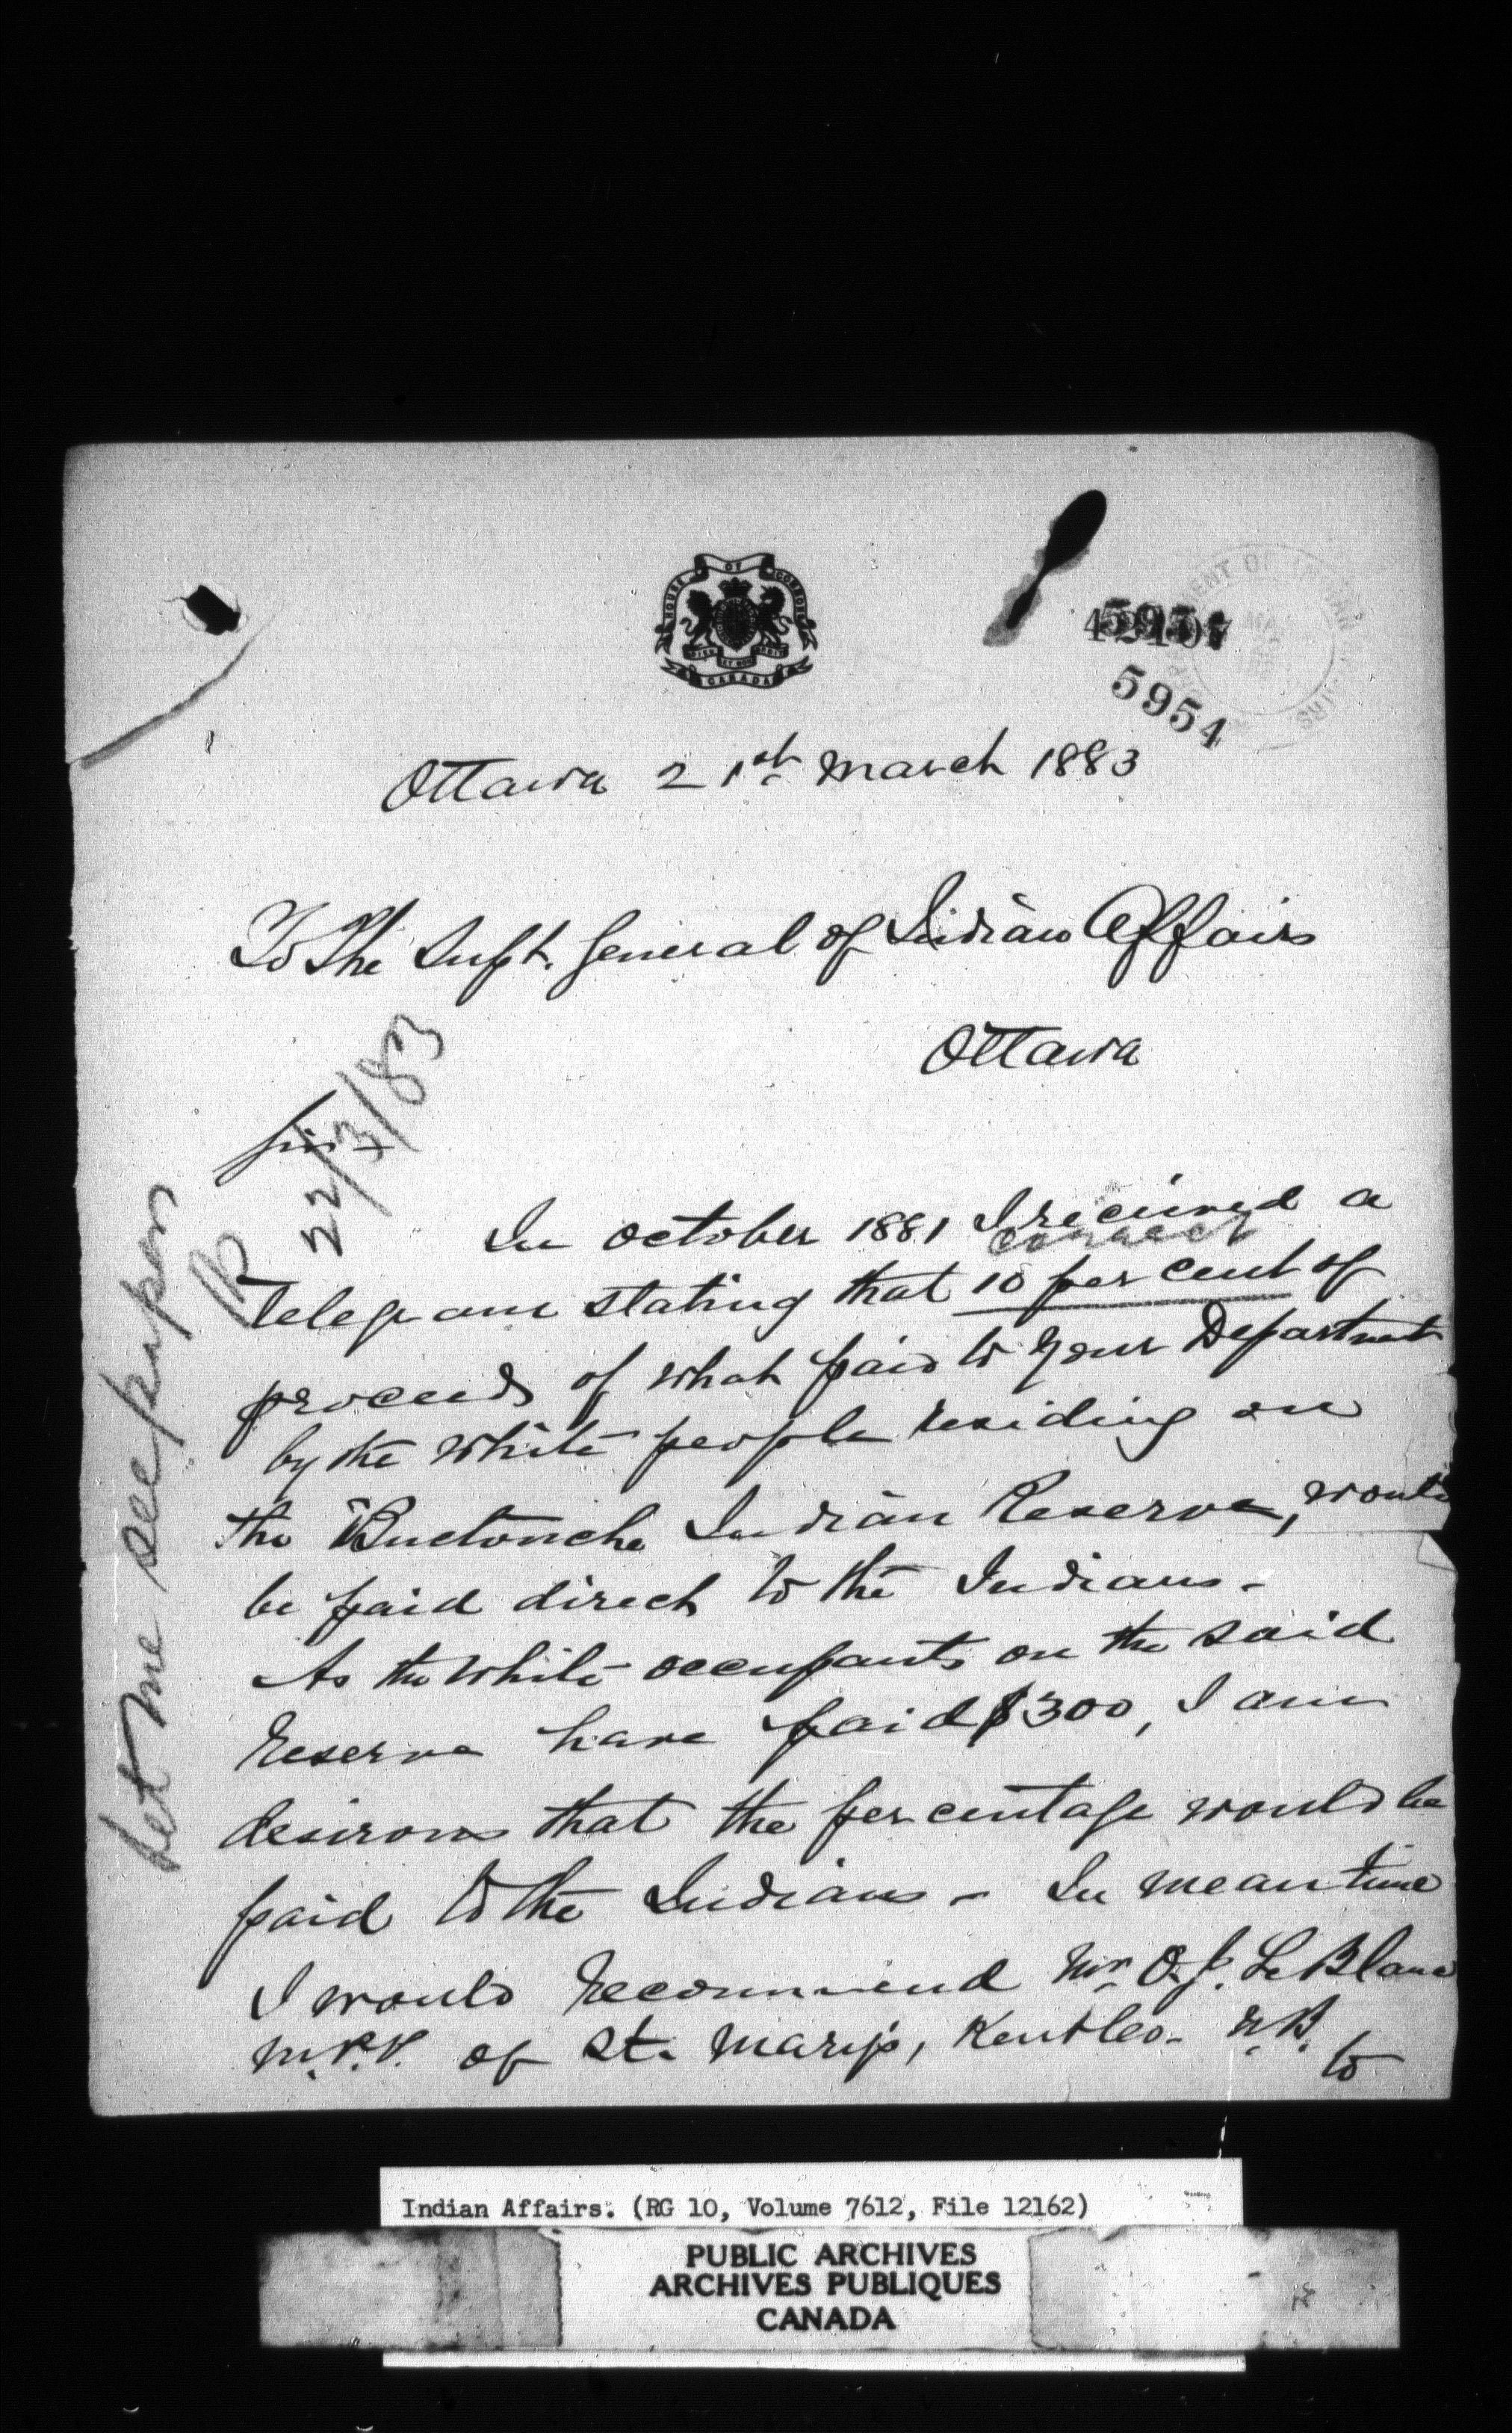 HOUSE OF COMMONS
CANADA
DEPARTMENT OF INDIAN AFFAIRS
42107
5954
Ottawa 21st March 1883
To The Supt. General of Indian Affairs
Ottawa
Sir
22/3/83
Let me see papers
In October 1881 I received a
correct
Telegram stating that 10 per cent of
proceeds of what paid to your Department
by the white people residing on
the Buctouche Indian Reserve, would
be paid direct to the Indians -
As the white occupants on the said
Reserve have paid $300, I am
desirous that the percentage would be
paid to the Indians - In meantime
I would Recommend Mr. O. J. LeBlanc
M.P.P. of St. Mary's, Kent Co. N.B. to
Indian Affairs. (RG 10, Volume 7612, File 12162)
PUBLIC ARCHIVES
ARCHIVES PUBLIQUES
CANADA